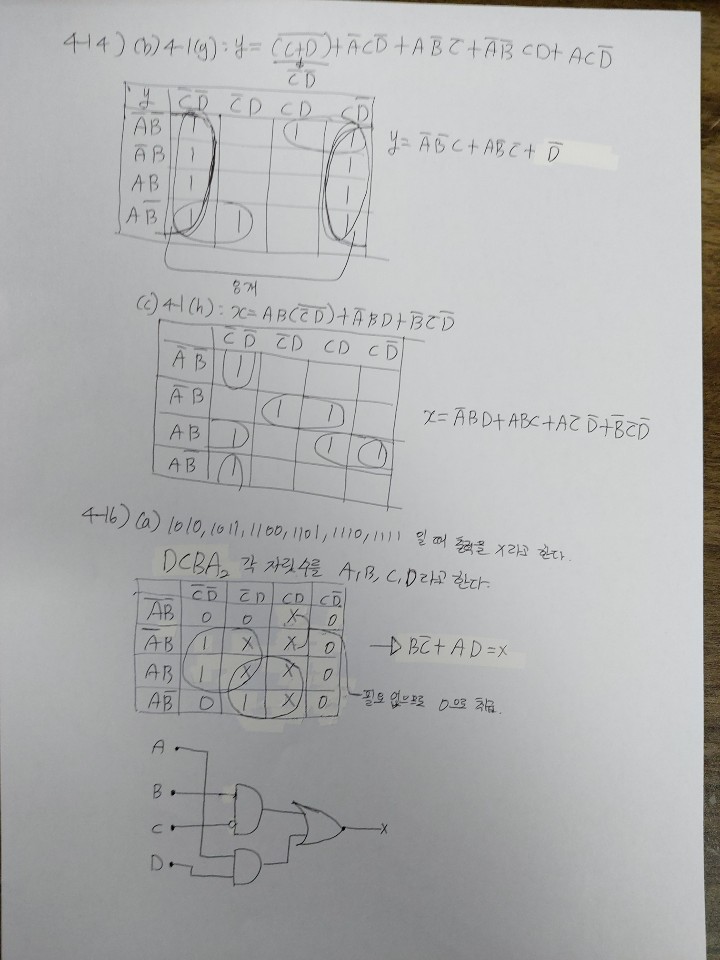 4-14) (b) 4-1(g) : y = (C+D)̅ + A̅CD̅ + AB̅C̅ + A̅B̅CD + ACD̅
C̅D̅
y C̅D̅ C̅D CD CD̅
A̅B̅ 1 1 1
A̅B 1 1
AB 1 1
AB̅ 1 1 1
y = A̅B̅C + AB̅C̅ + D̅
8개
(c) 4-1(h) : x = AB(C̅D̅)̅ + A̅BD + B̅C̅D̅
C̅D̅ C̅D CD CD̅
A̅B̅ 1
A̅B 1 1
AB 1 1 1
AB̅ 1
x = A̅BD + ABC + AC̅D̅ + B̅C̅D̅
4-16) (a) 1010, 1011, 1100, 1101, 1110, 1111 일 때 출력을 X라고 한다.
DCBA₂ 각 자릿수를 A, B, C, D라고 한다.
C̅D̅ C̅D CD CD̅
A̅B̅ 0 0 X 0
A̅B 1 X X 0
AB 1 X X 0
AB̅ 0 1 X 0
→ BC̅ + AD = X
필요 없으므로 0으로 취급.
A
B
C
D
X